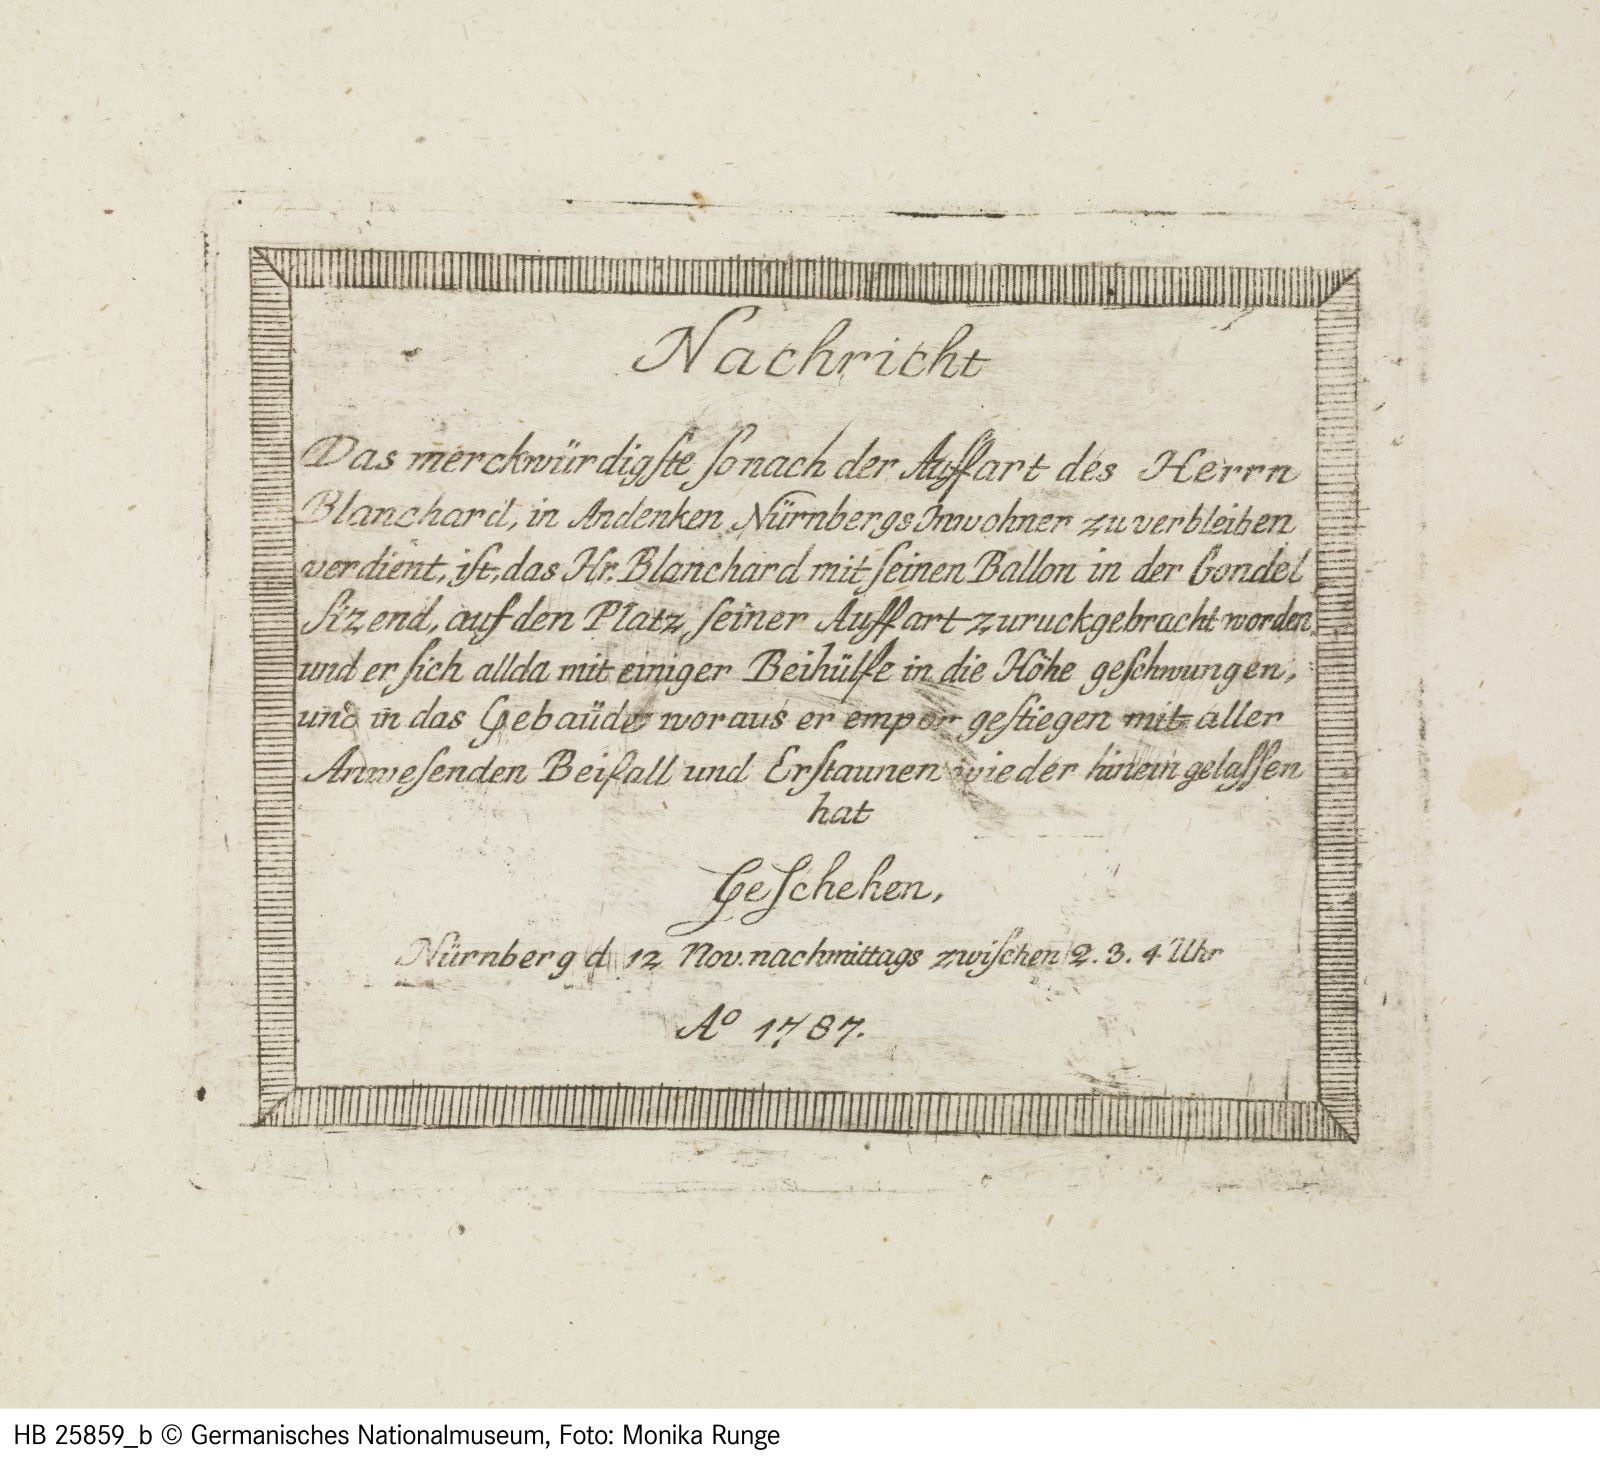 Nachricht
Das merckwürdigſte ſo nach der Auffart des Herrn
Blanchard, in Andenken Nürnbergs Inwohner zu verbleiben
verdient, iſt, das Hr. Blanchard mit ſeinen Ballon in der Gondel
ſizend, auf den Platz, ſeiner Auffart zuruckgebracht worden
und er ſich allda mit einiger Beihülfe in die Höhe geſchwungen,
und in das Gebaüde woraus er empor geſtiegen mit aller
Anweſenden Beifall und Erſtaunen wieder hinein gelaſſen
hat
Geſchehen,
Nürnberg d. 12 Nov. nachmittags zwiſchen 2. 3. 4 Uhr
Aº 1787.
HB 25859_b © Germanisches Nationalmuseum, Foto: Monika Runge